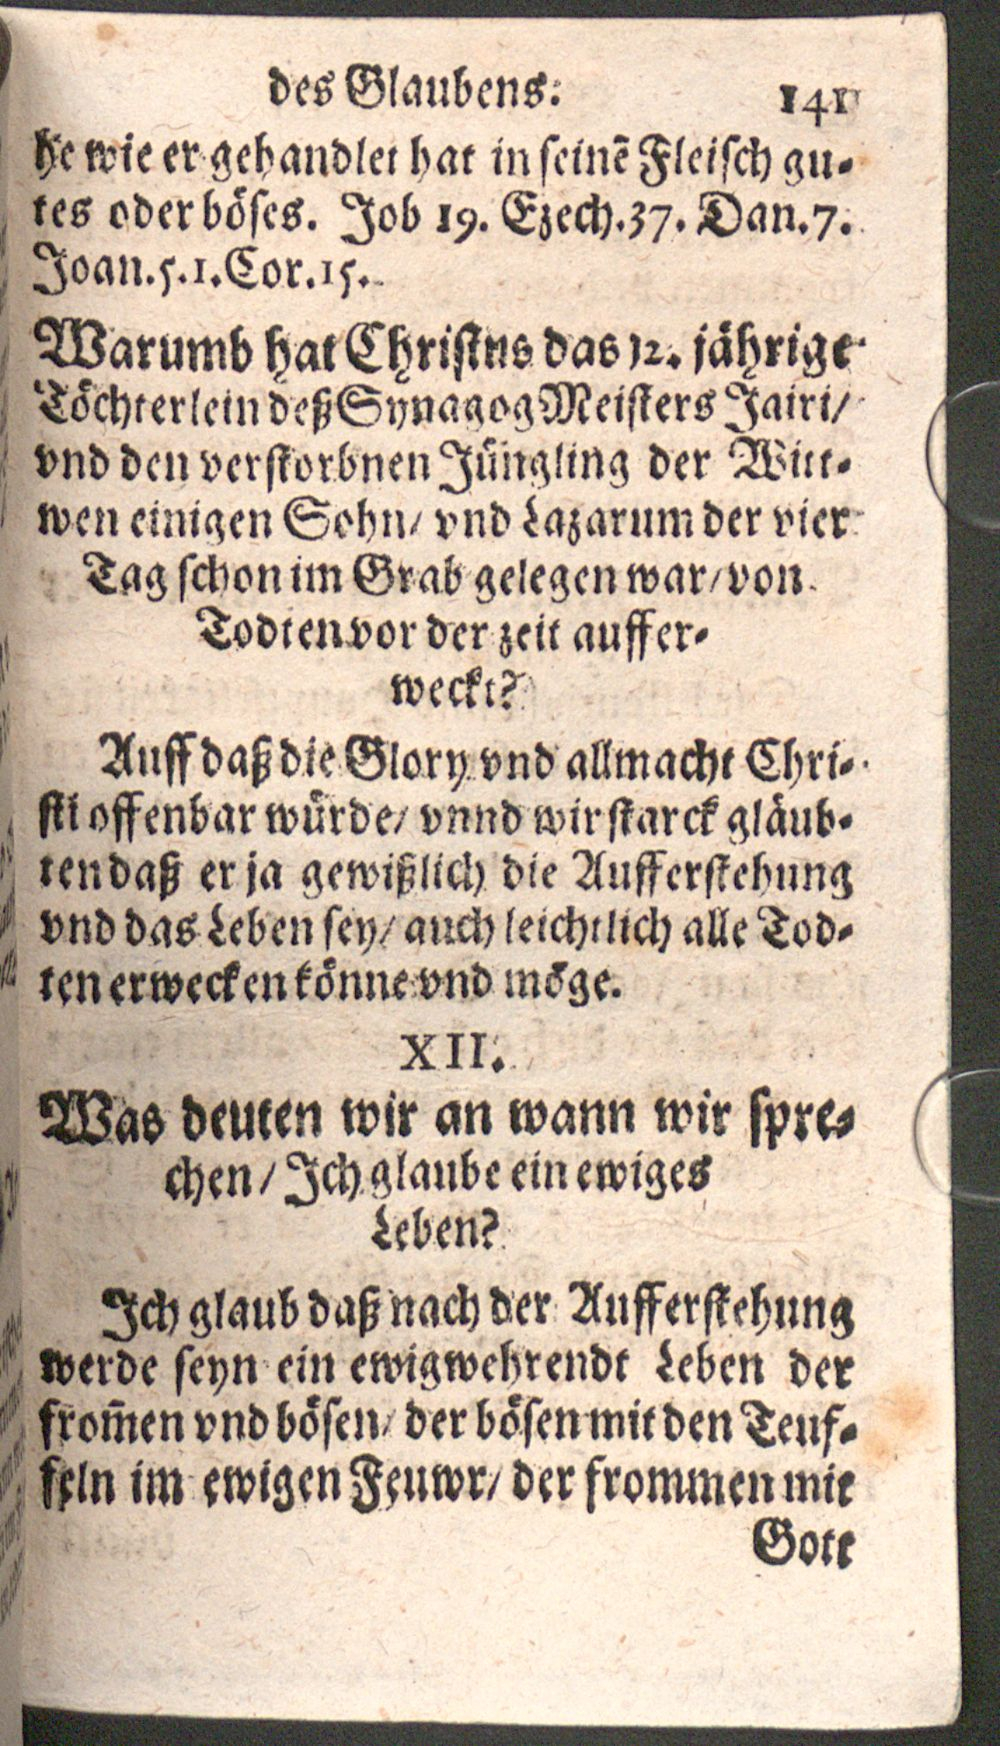 des Glaubens. 141
he wie er gehandlet hat in seinē Fleisch gu-
tes oder böses. Job 19. Ezech. 37. Dan. 7.
Joan. 5. 1. Cor. 15.
Warumb hat Christus das 12. jährige
Töchterlein deß Synagog Meisters Jairi/
vnd den verstorbnen Jüngling der Witt-
wen einigen Sohn/ vnd Lazarum der vier
Tag schon im Grab gelegen war/ von
Todten vor der zeit auffer-
weckt?
Auff daß die Glory vnd allmacht Chri-
sti offenbar würde/ vnnd wir starck gläub-
ten daß er ja gewißlich die Aufferstehung
vnd das Leben sey/ auch leichtlich alle Tod-
ten erwecken könne vnd möge.
XII.
Was deuten wir an wann wir spre-
chen/ Ich glaube ein ewiges
Leben?
Ich glaub daß nach der Aufferstehung
werde seyn ein ewigwehrendt Leben der
from̄en vnd bösen/ der bösen mit den Teuf-
feln im ewigen Feuwr/ der frommen mit
Gott